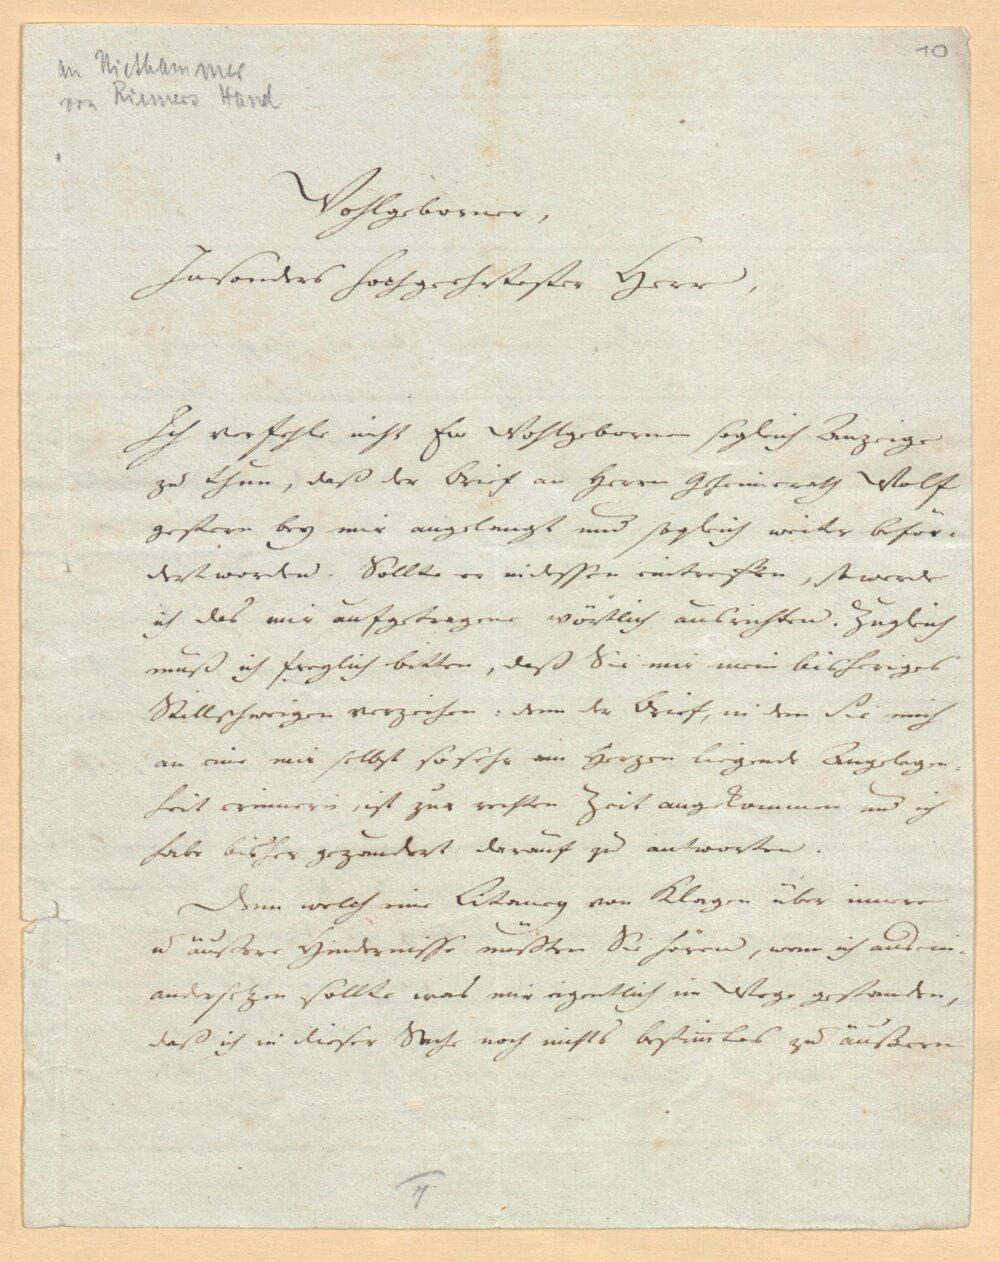 10
an Niethammer
von Riemers Hand
Wohlgeborner,
Insonders hochgeehrtester Herr,
Ich verfehle nicht Ew Wohlgebornen sogleich Anzeige
zu thun, daß der Brief an Herrn Geheimerath Wolf
gestern bey mir angelangt und sogleich weiter beför-
dert worden. Sollte er indessen eintreffen, so werde
ich das mir aufgetragene wörtlich ausrichten. Zugleich
muß ich freylich bitten, daß Sie mir mein bisheriges
Stillschweigen verzeihen: denn der Brief, in dem Sie mich
an eine mir selbst so sehr am Herzen liegende Angelegen-
heit erinnern, ist zur rechten Zeit angekommen und ich
habe bisher gezaudert darauf zu antworten.
Denn welch eine Litaney von Klagen über innere
u äußere Hindernisse müßten Sie hören, wenn ich ausein-
andersetzen sollte was mir eigentlich im Wege gestanden,
daß ich in dieser Sache noch nichts bestimtes zu äußern